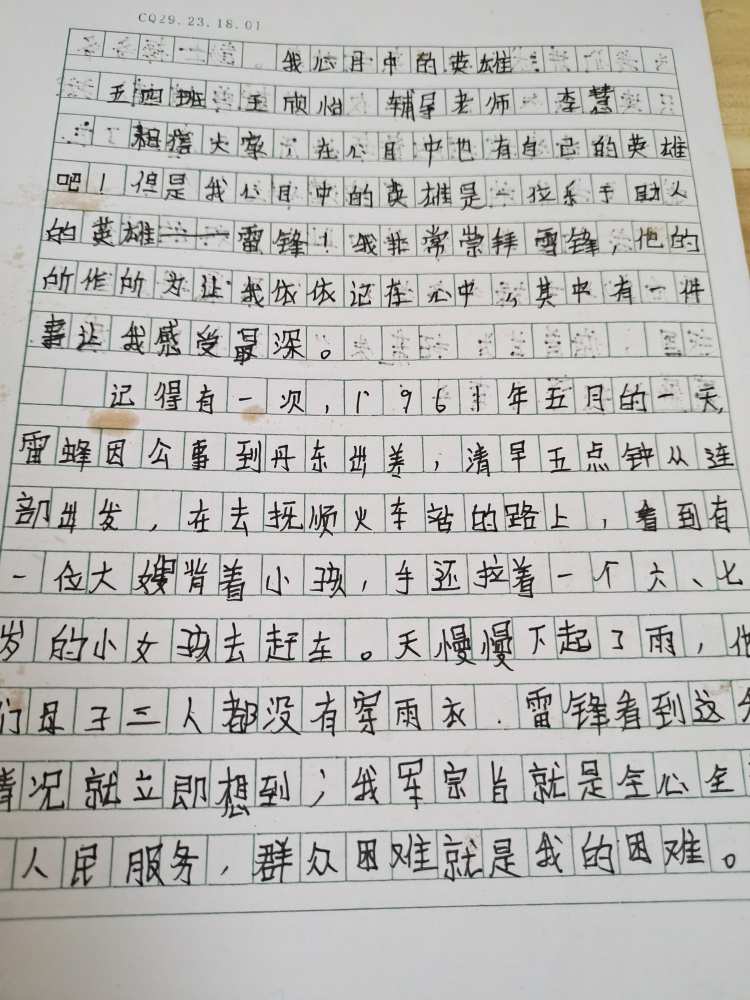 CQ29.23.18.01
我心目中的英雄
五四班 王欣怡 辅导老师 李慧
相信大家,在心目中也有自己的英雄
吧!但是我心目中的英雄是一位乐于助人
的英雄——雷锋!我非常崇拜雷锋,他的
所作所为让我依依记在心中,其中有一件
事让我感受最深。
记得有一次,1961年五月的一天,
雷蜂因公事到丹东出差,清早五点钟从连
部出发,在去抚顺火车站的路上,看到有
一位大嫂背着小孩,手还拉着一个六、七
岁的小女孩去赶车。天慢慢下起了雨,他
们母子三人都没有穿雨衣.雷锋看到这
情况就立即想到;我军宗旨就是全心全
人民服务,群众困难就是我的困难。